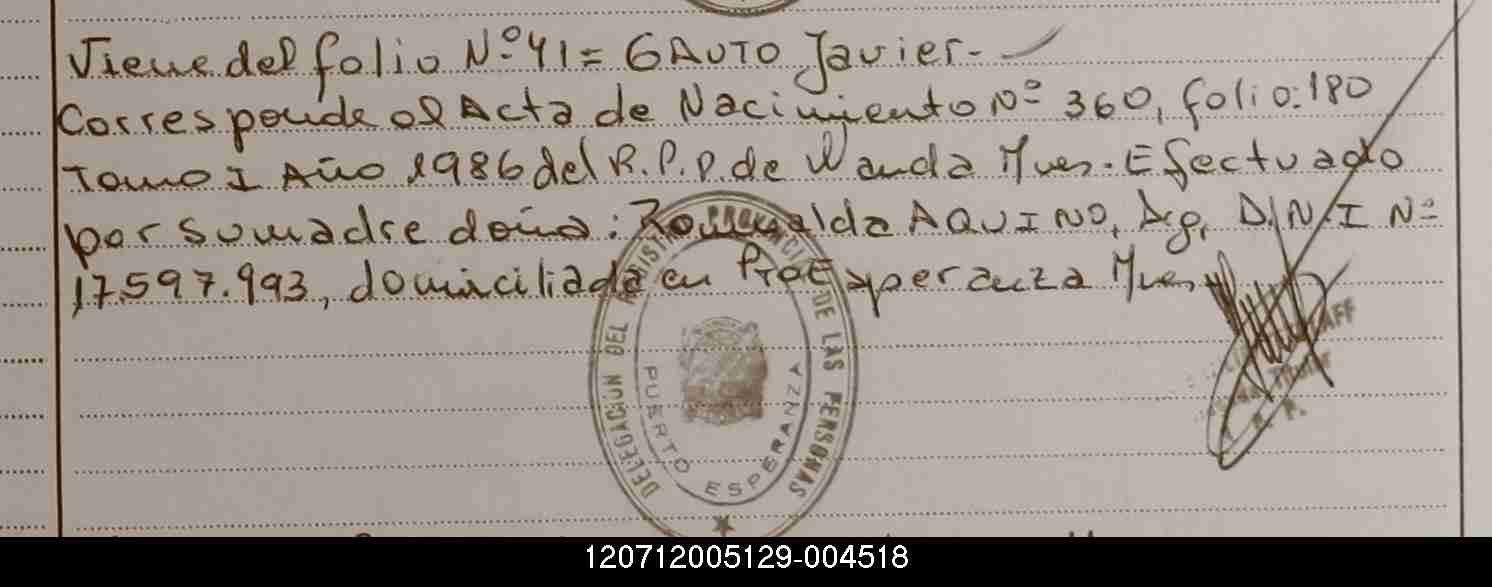 Viene del folio Nº 41 = GAUTO Javier.-
Corresponde al Acta de Nacimiento Nº 360, folio: 180
Tomo I Año 1986 del R.P.P. de Wanda Mnes. Efectuado
por su madre doña: Romualda AQUINO, Arg, D.N.I Nº
17.597.993, domiciliada en Pto Esperanza Mnes,
DELEGACION DEL REGISTRO PROVINCIAL DE LAS PERSONAS
PUERTO ESPERANZA
120712005129-004518